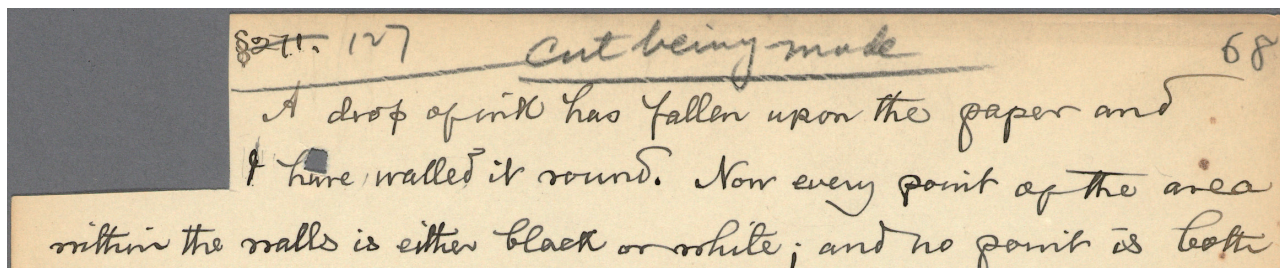 §271. 127 Cut being made 68
A drop of ink has fallen upon the paper and
I have walled it round. Now every point of the area
within the walls is either black or white; and no point is both